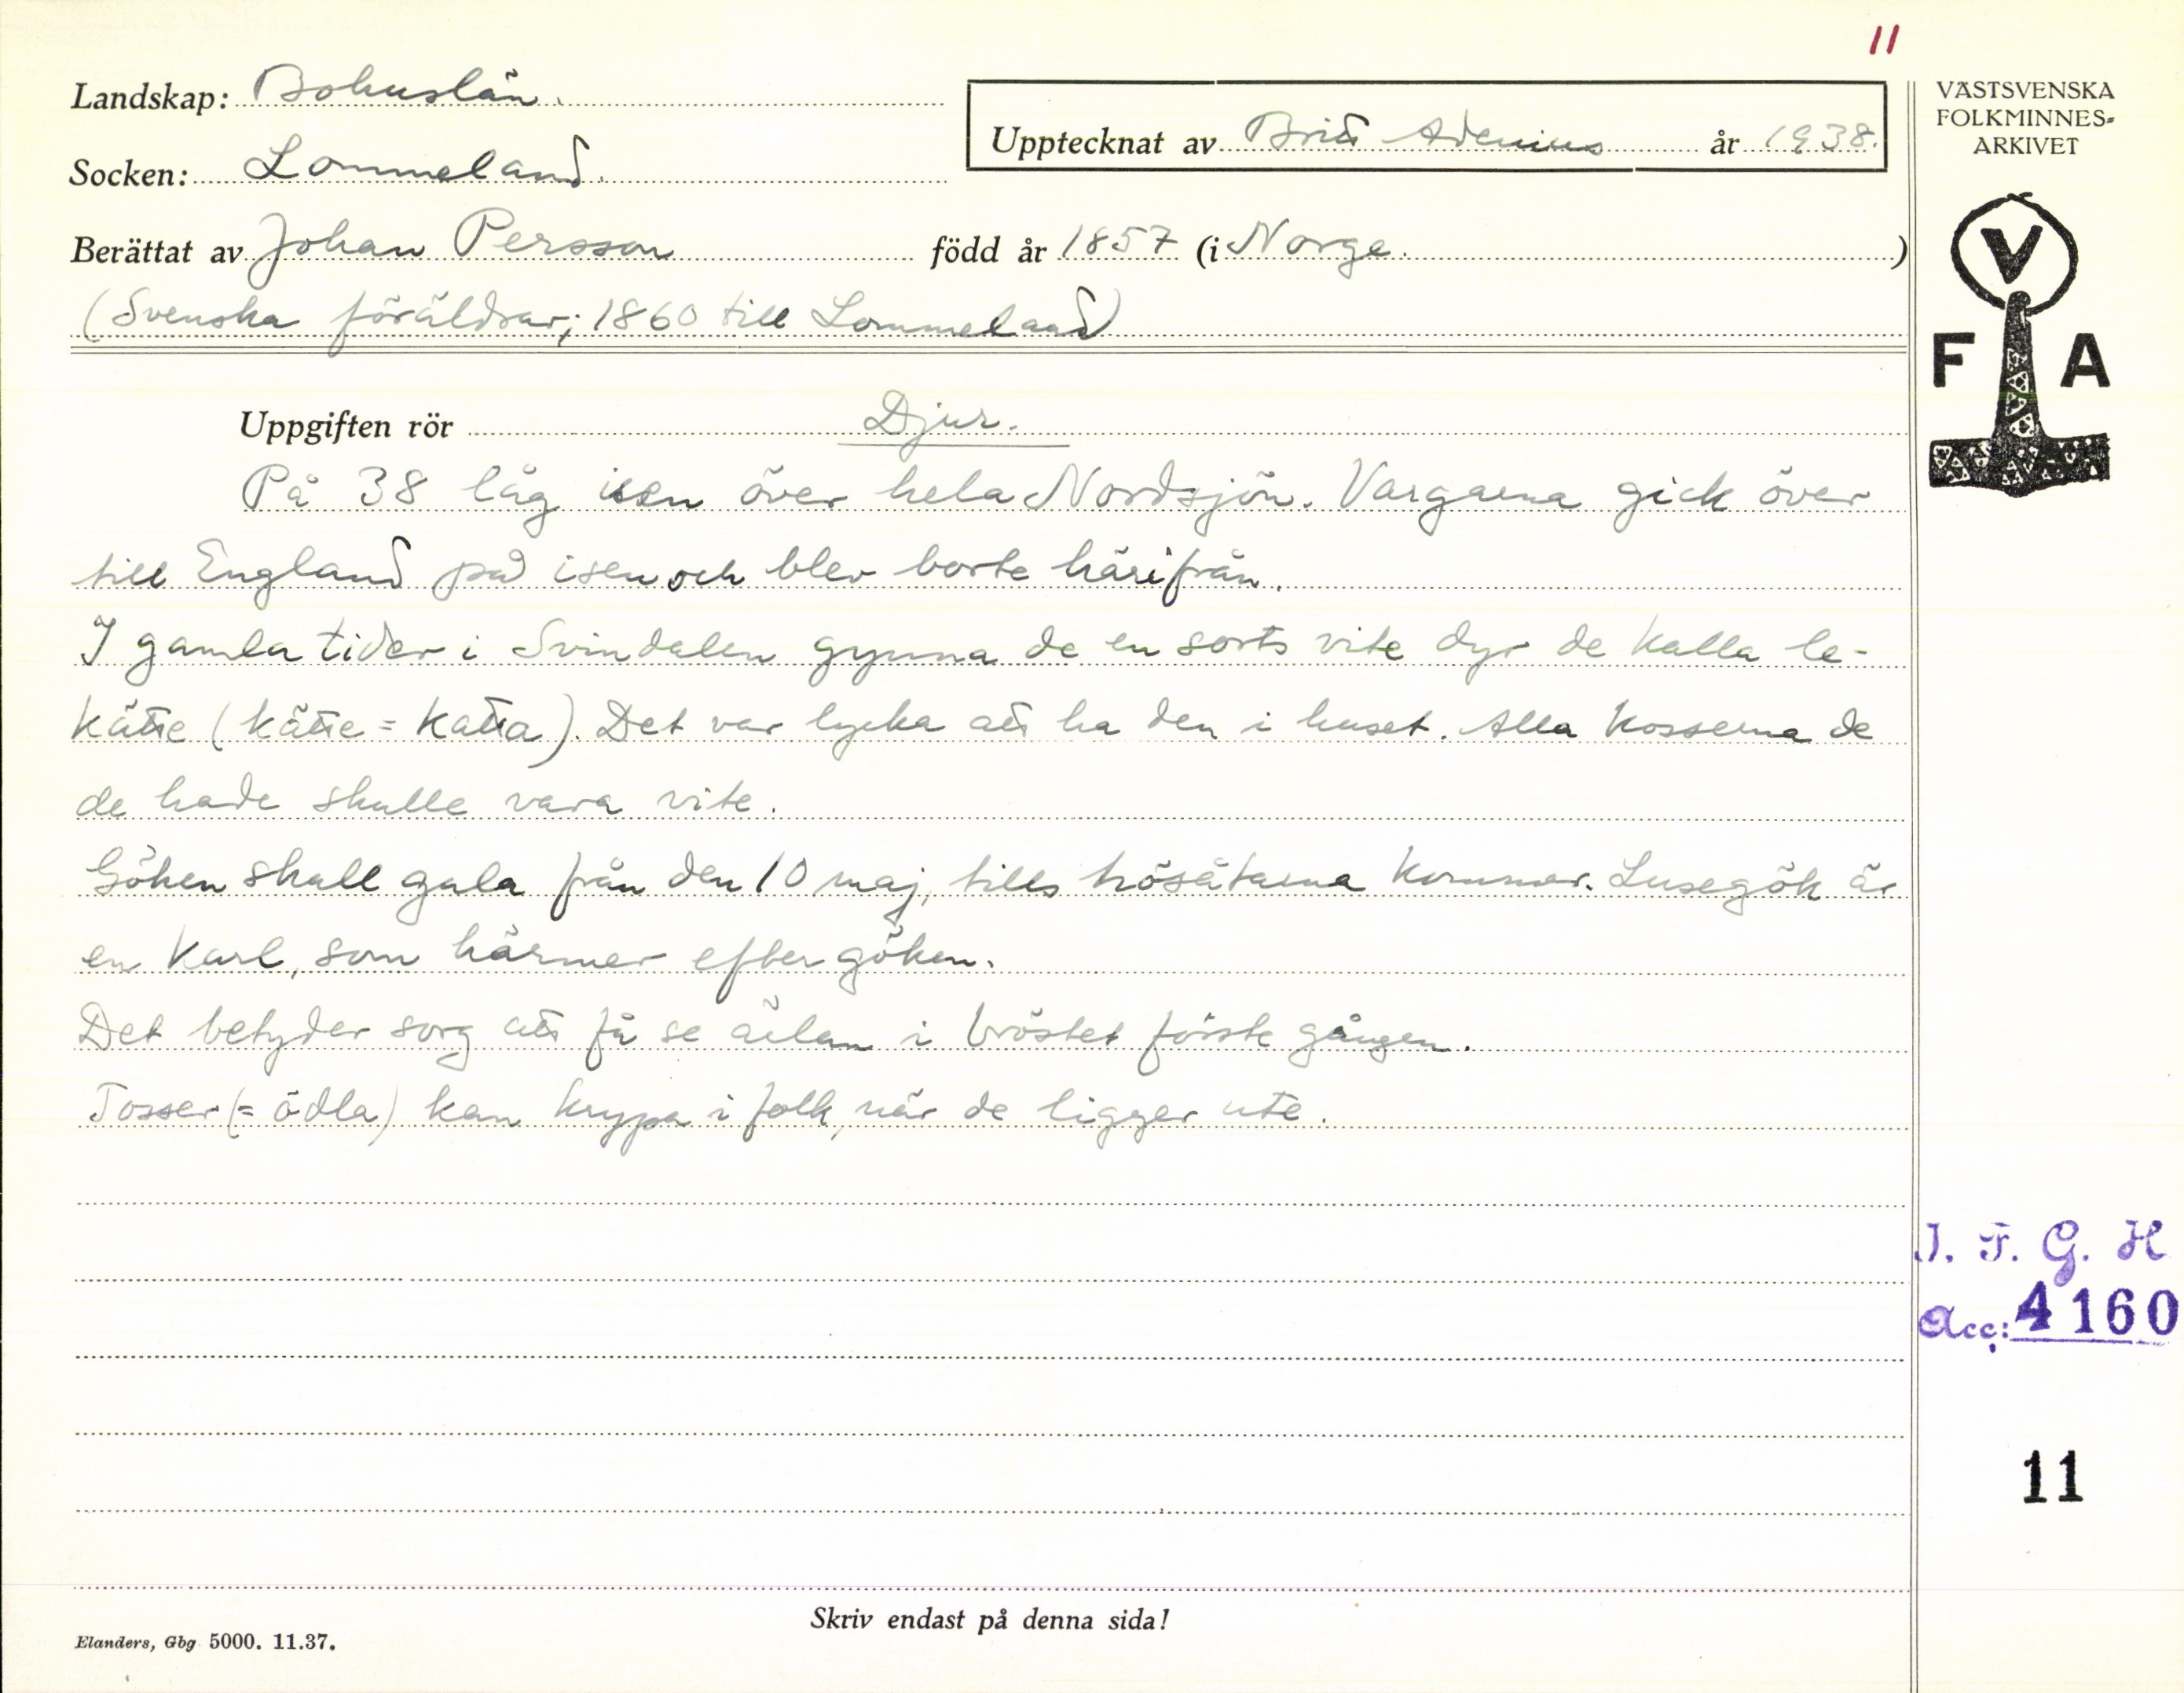 11
Landskap: Bohuslän.
Upptecknat av Britt Adenius år 1938.
Socken: Lommeland.
Berättat av Johan Persson född år 1857 (i Norge.)
(Svenska föräldrar; 1860 till Lommeland)
VÄSTSVENSKA
FOLKMINNES-
ARKIVET
V
F A
Uppgiften rör Djur.
På 38 låg isen över hela Nordsjön. Vargarna gick över
till England på isen och blev borte härifrån.
I gamla tider i Svindalen gynna de en sorts vite dyr de kalla le-
kätte (kätte = katta). Det var lycka att ha den i huset. Alla kosserna de
de hade skulle vara vite.
Göken skall gala från den 10 maj, tills hösåtarna kommer. Lusegök är
en karl, som härmer efter göken.
Det betyder sorg att få se ärlan i bröstet förste gången.
Tosser (= ödla) kan krypa i folk, när de ligger ute.
I. F. G. H
Acc: 4160
11
Skriv endast på denna sida!
Elanders, Gbg 5000. 11.37.